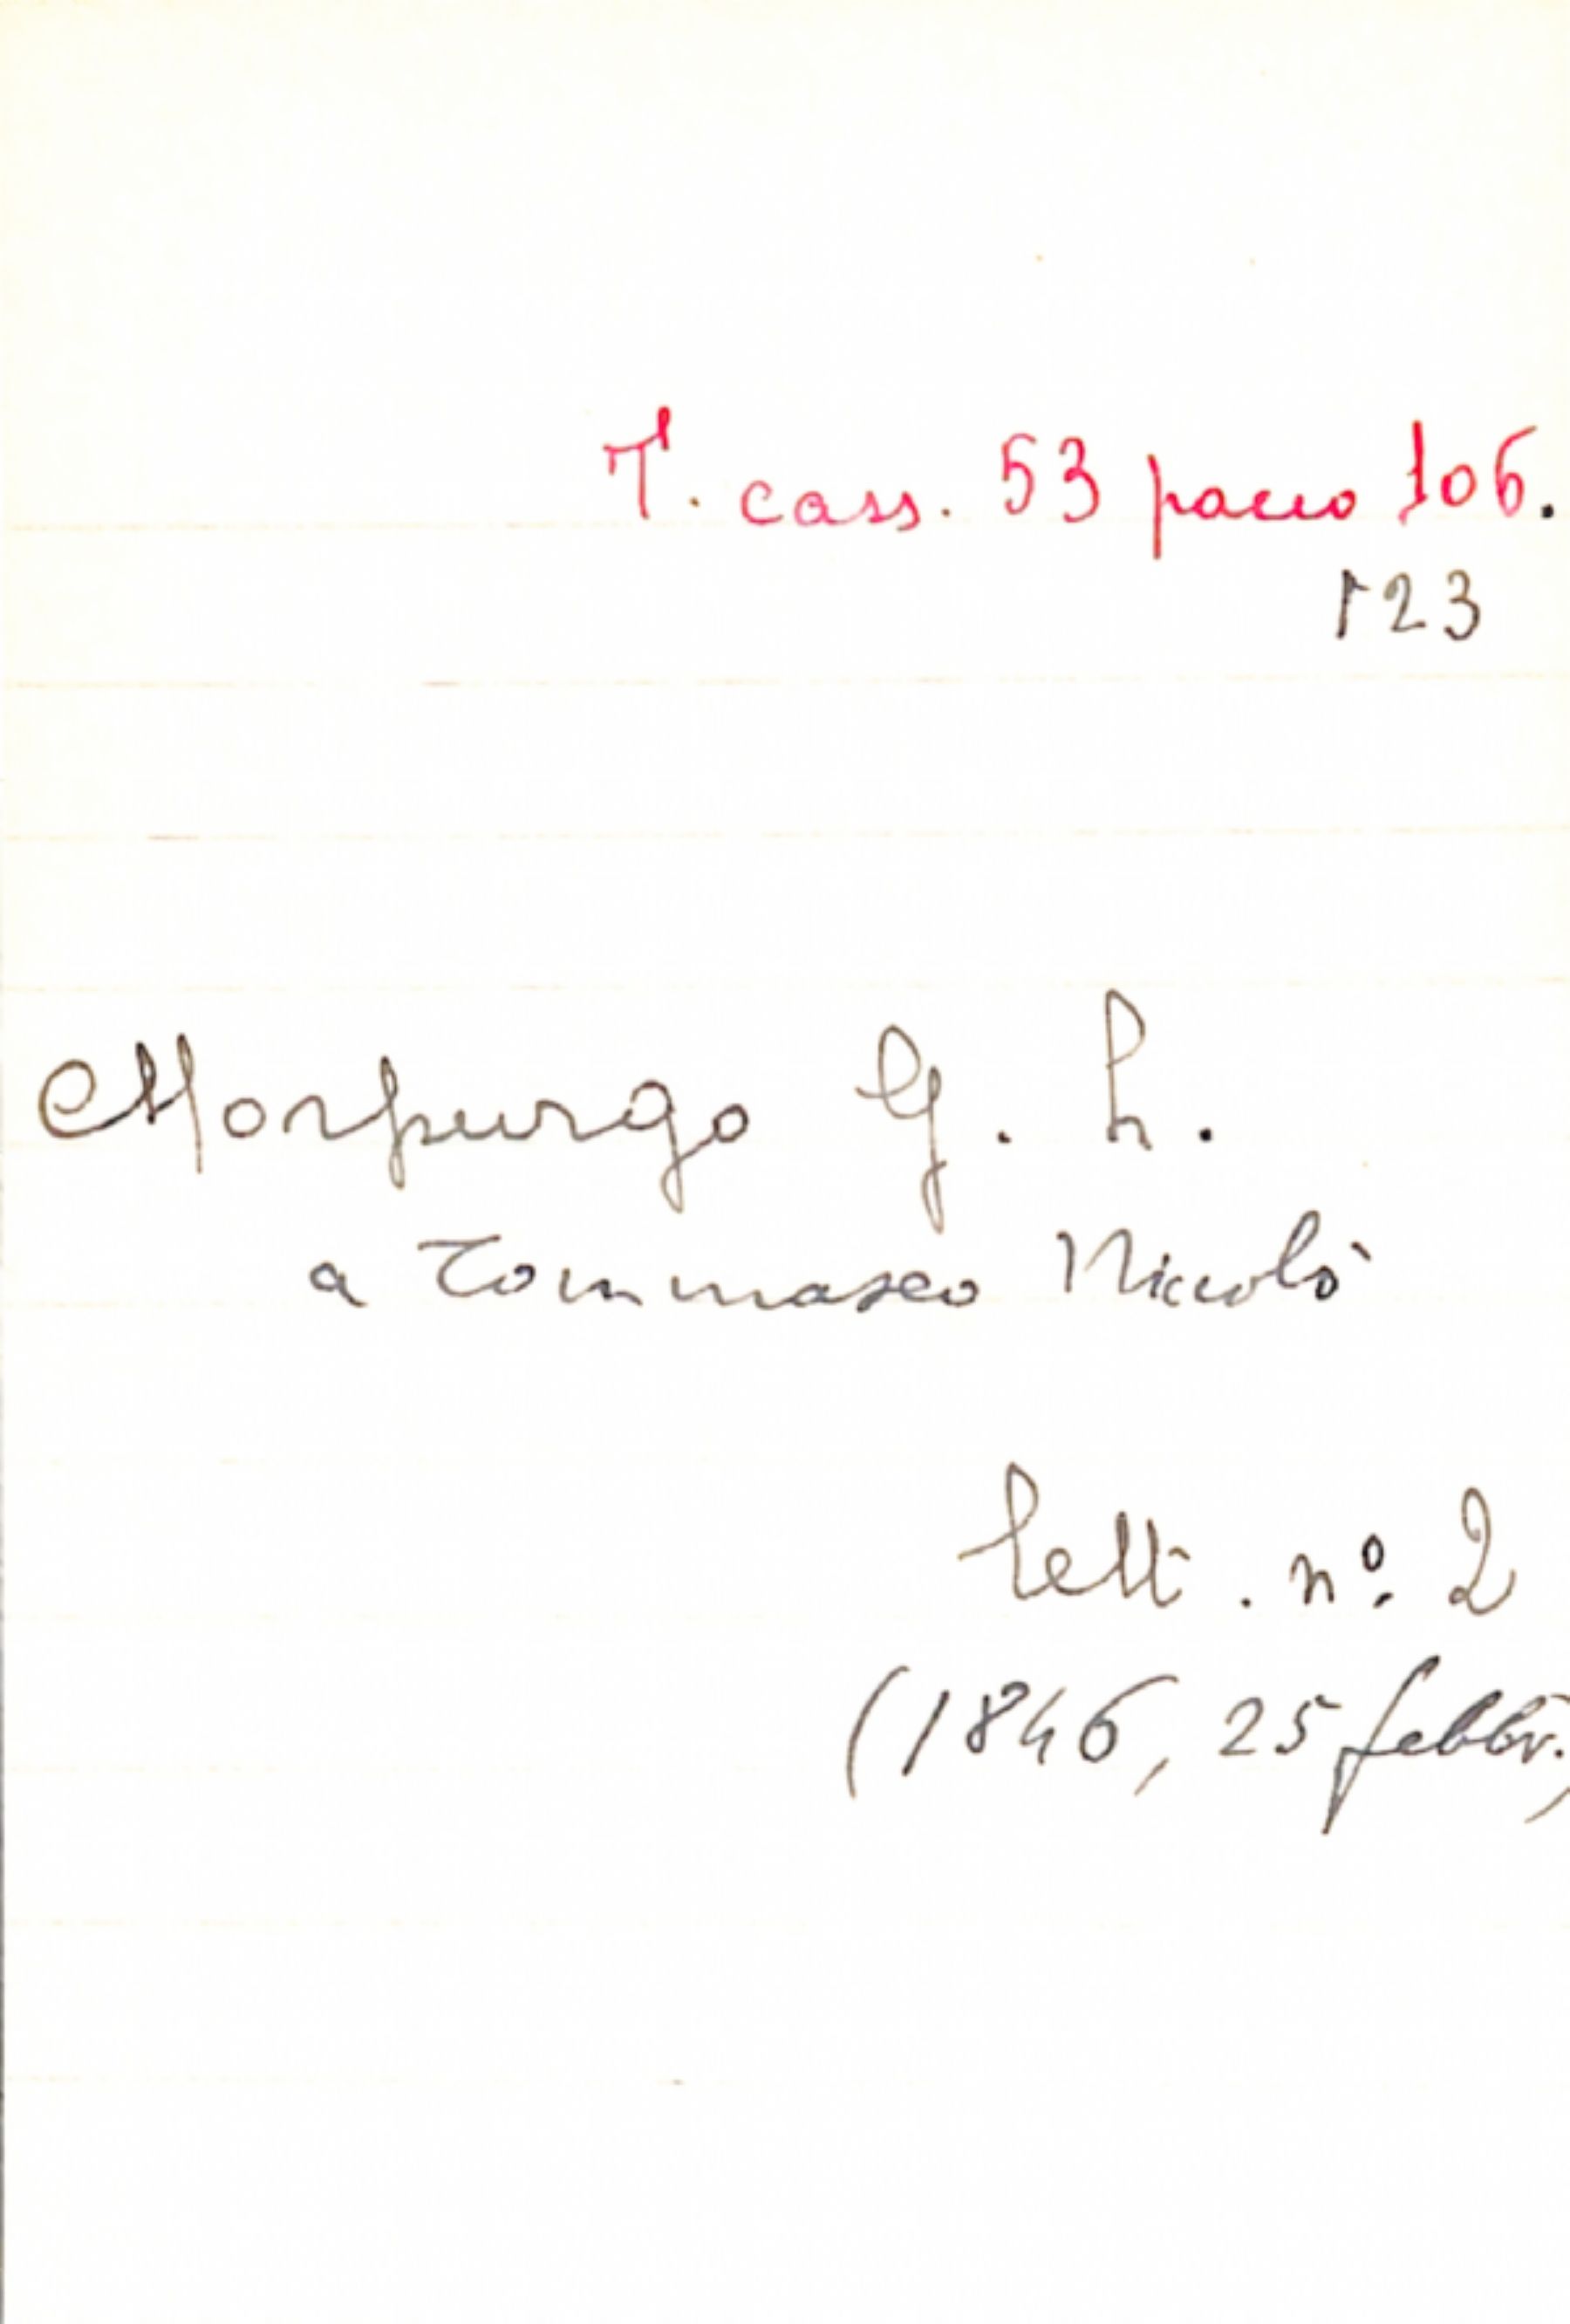 T. cass. 53 pacco 106.
123
Morpurgo G. L.
a Tommaseo Niccolò
lett. nº. 2
(1846, 25 febbr.)